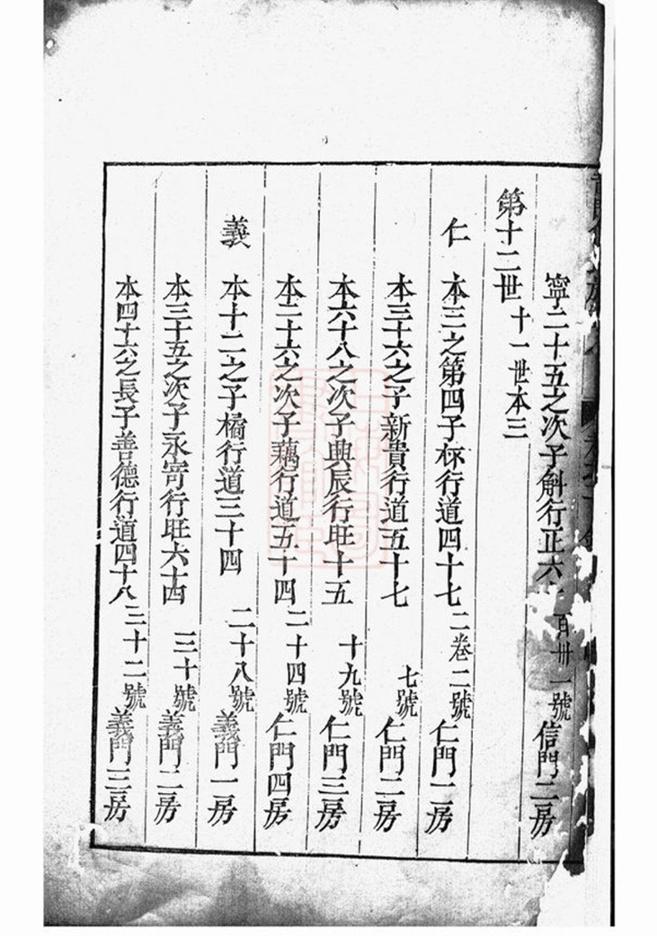 寧二十五之次子斛行正六 百卅一號 信門二房
第十二世 十一世本三
仁 本三之第四子 行道四十七 二卷二號 仁門一房
本三十六之子新貴行道五十七 七號 仁門二房
本六十八之次子興辰行旺十五 十九號 仁門三房
本二十六之次子藕行道五十四 二十四號 仁門四房
義 本十二之子橘行道三十四 二十八號 義門一房
本三十五之次子永寄行旺六十四 三十號 義門二房
本四十六之長子善德行道四十八 三十二號 義門三房